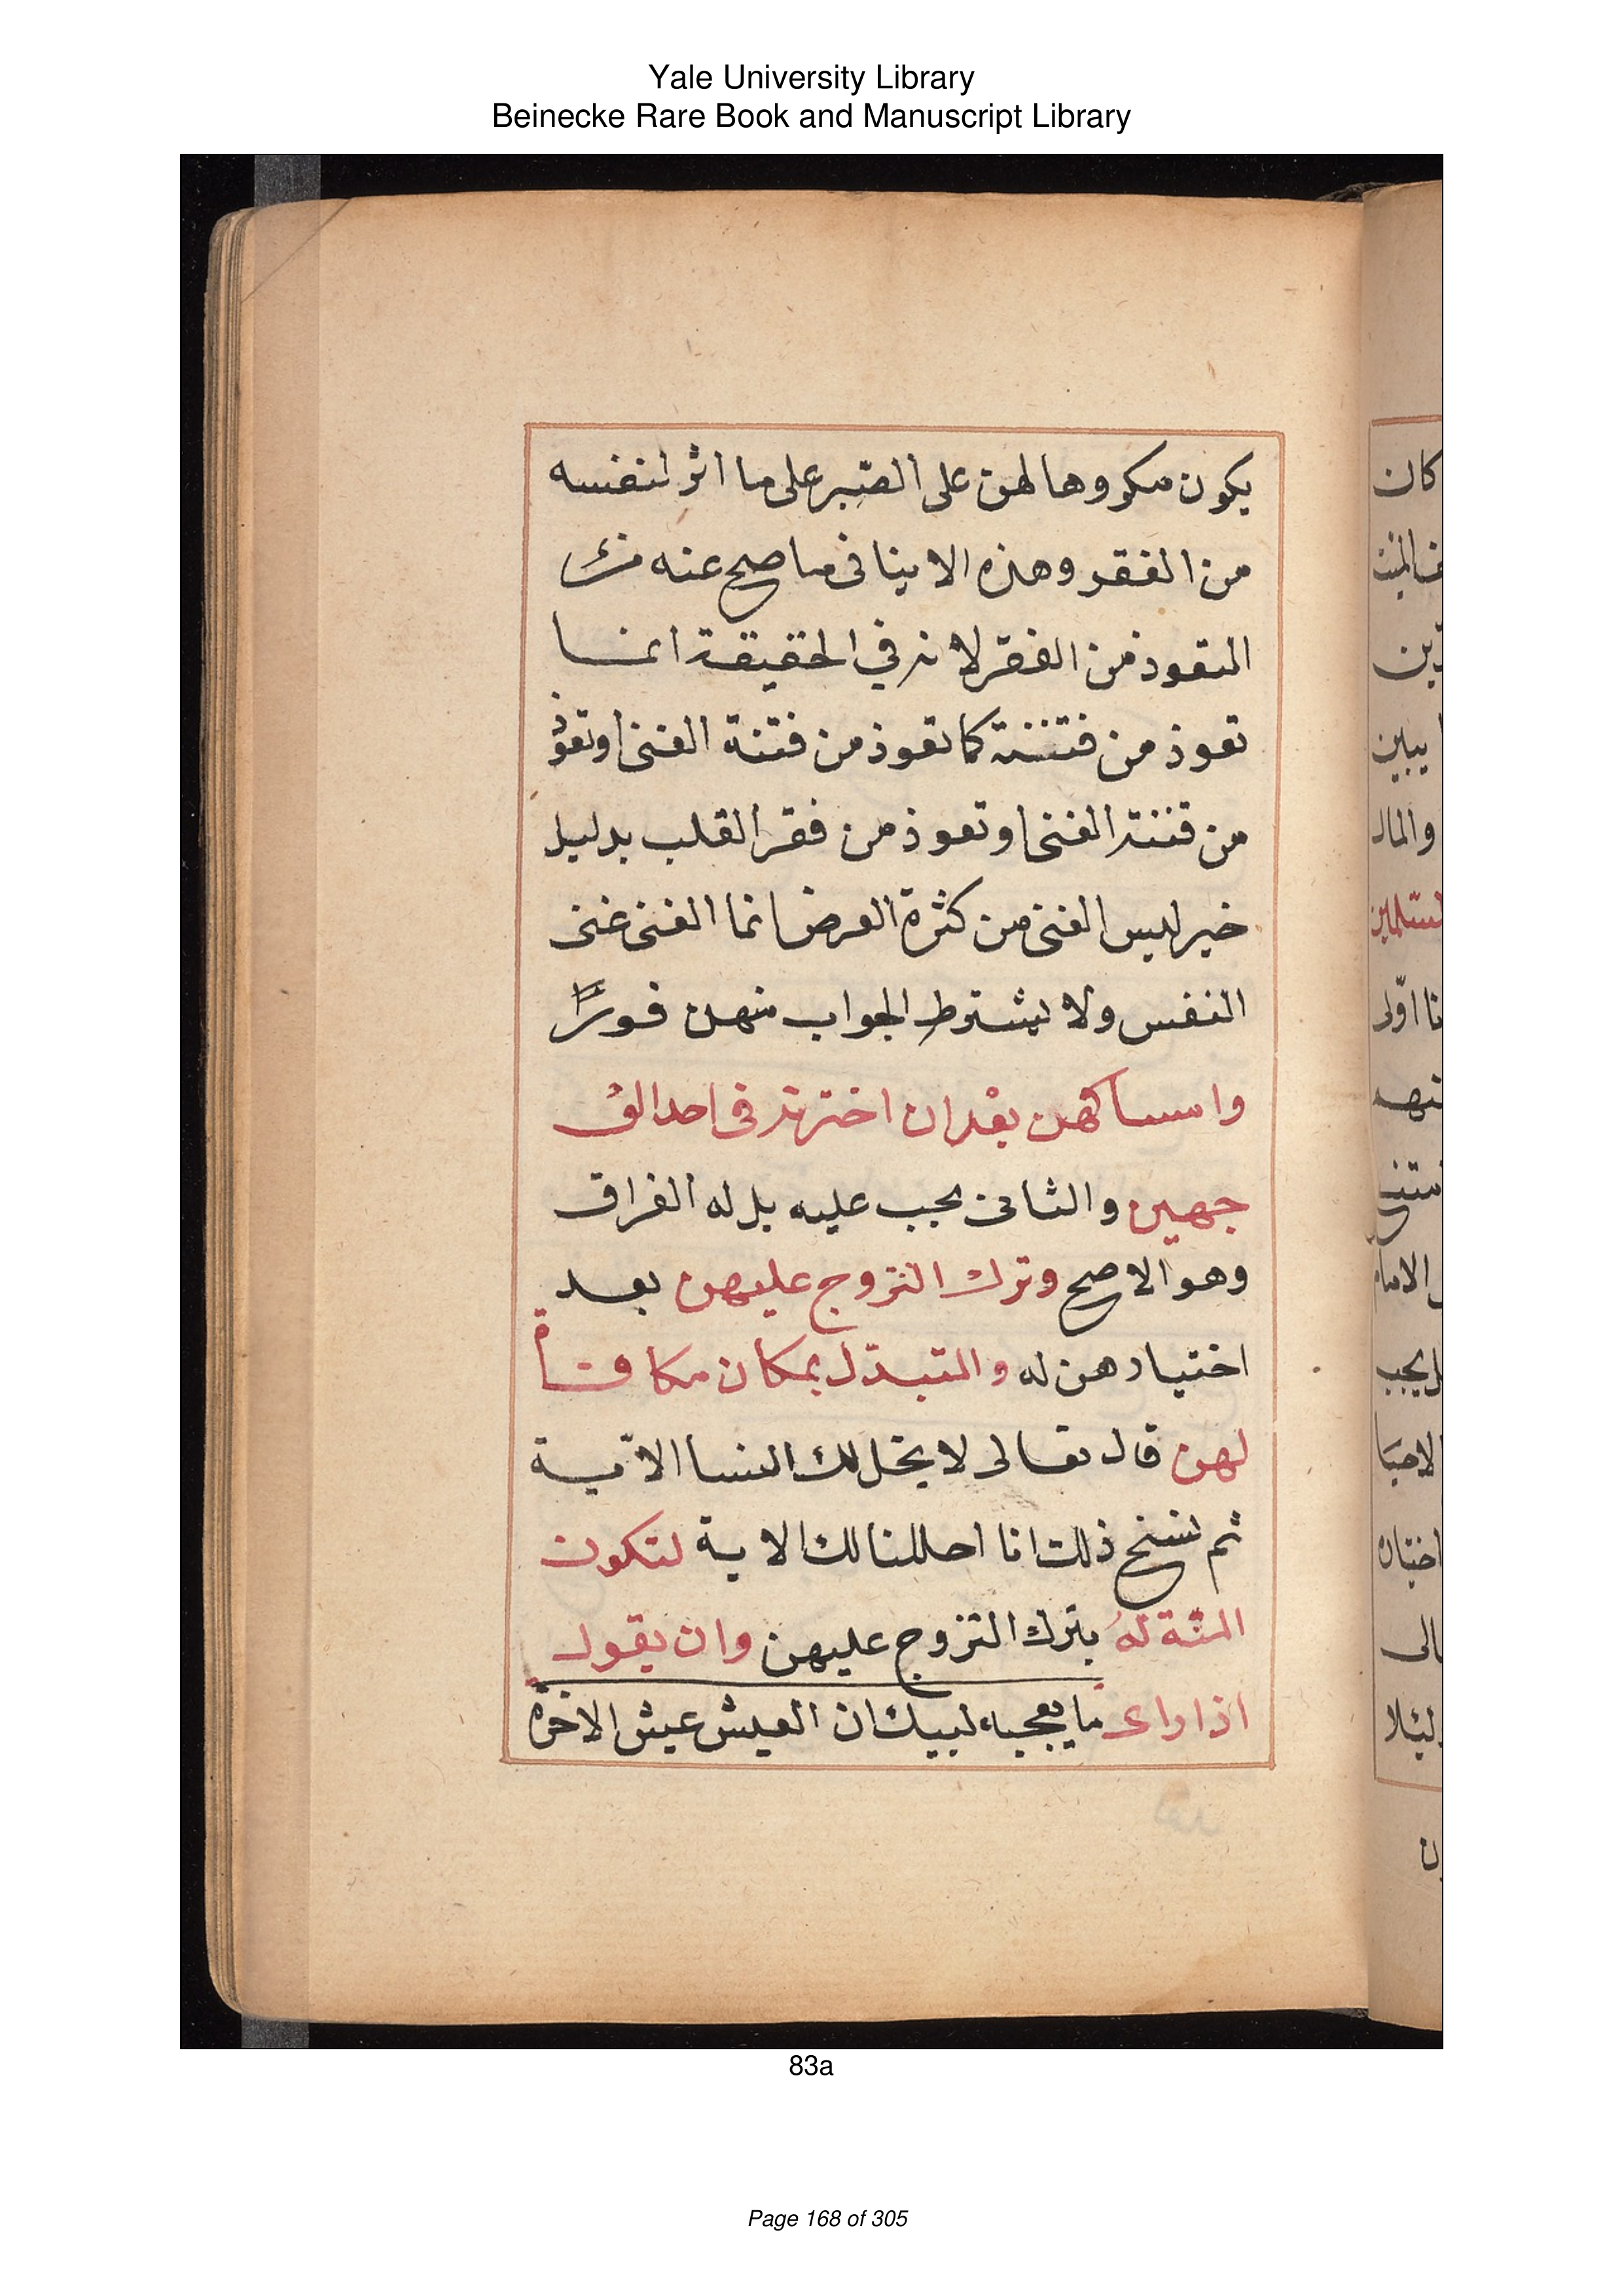 Yale University Library
Beinecke Rare Book and Manuscript Library
يكون مكروها لهن على الصّبر على ما اثر لنفسه
من الفقر وهذه الا ينافى ما صح عنه من
التعوذ من الفقر لانه في الحقيقة انما
تعوذ من فتنته كما تعوذ من فتنة الغنى اوتعوذ
من فتنة الغنى او تعوذ من فقر القلب بدليل
خبر ليس الغنى من كثرة العرض انما الغنى غنى
النفس ولا يشترط الجواب منهن فورًا
وامساكهن بعد ان اخترنه فى احد الو
جهين والثانى يجب عليه بل له الفراق
وهو الاصح وترك التزوج عليهن بعد
اختيارهن له والتبدّل بمكان مكافاة
لهن قال تعالى لا يحل لك النسا الآية
ثم نسخ ذلك انا احللنا لك الاية لتكون
المنّة لهُ بترك التزوج عليهن وان يقول
اذا راى ما يعجبه لبيك ان العيش عيش الاخرة
83a
Page 168 of 305